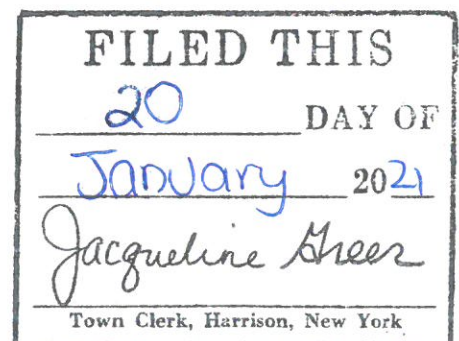 FILED THIS
20 DAY OF
January 2021
Jacqueline Greer
Town Clerk, Harrison, New York